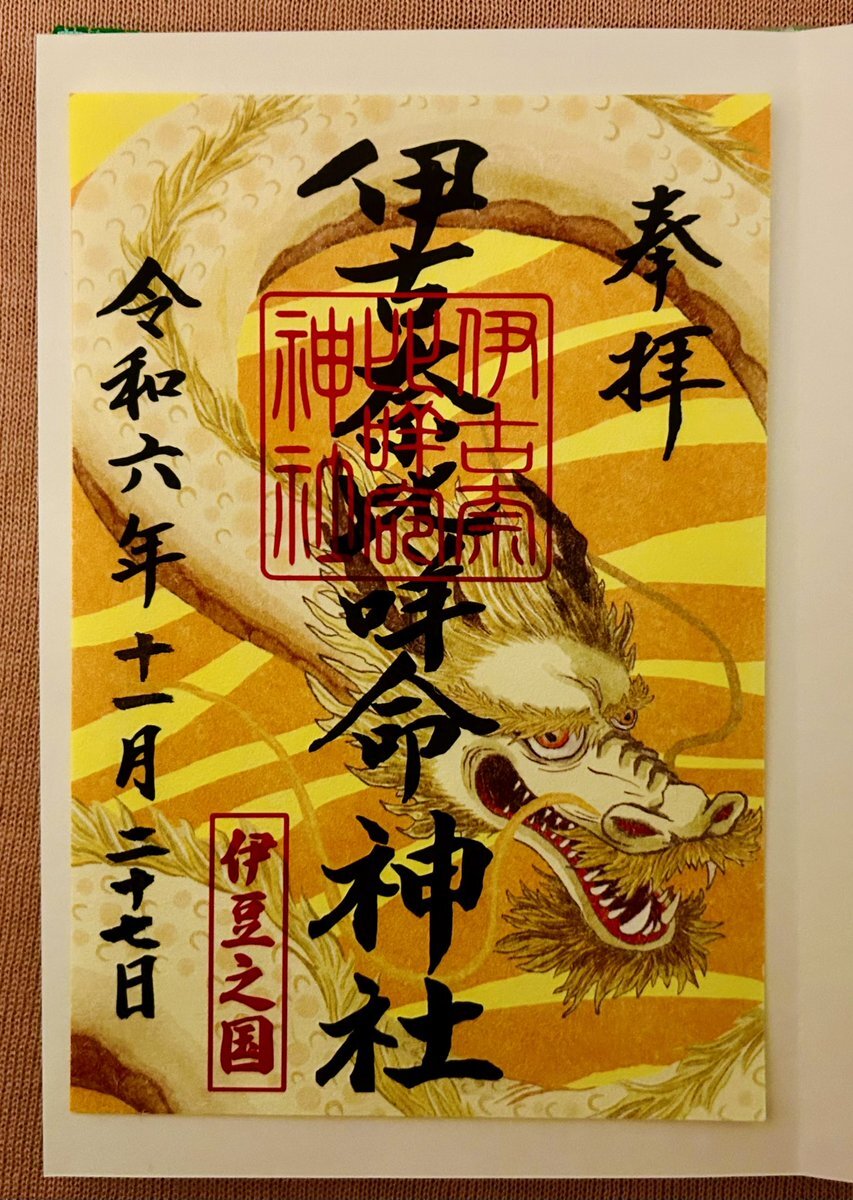 奉拝
伊古奈比咩命神社
伊古奈
比咩命
神社
伊豆之国
令和六年十一月二十七日